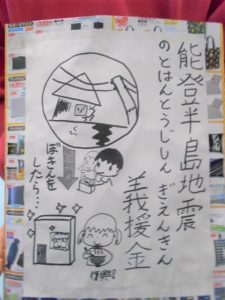 能登半島地震
のとはんとうじしん ぎえんきん
義援金
ぼきんを
したら…
復興